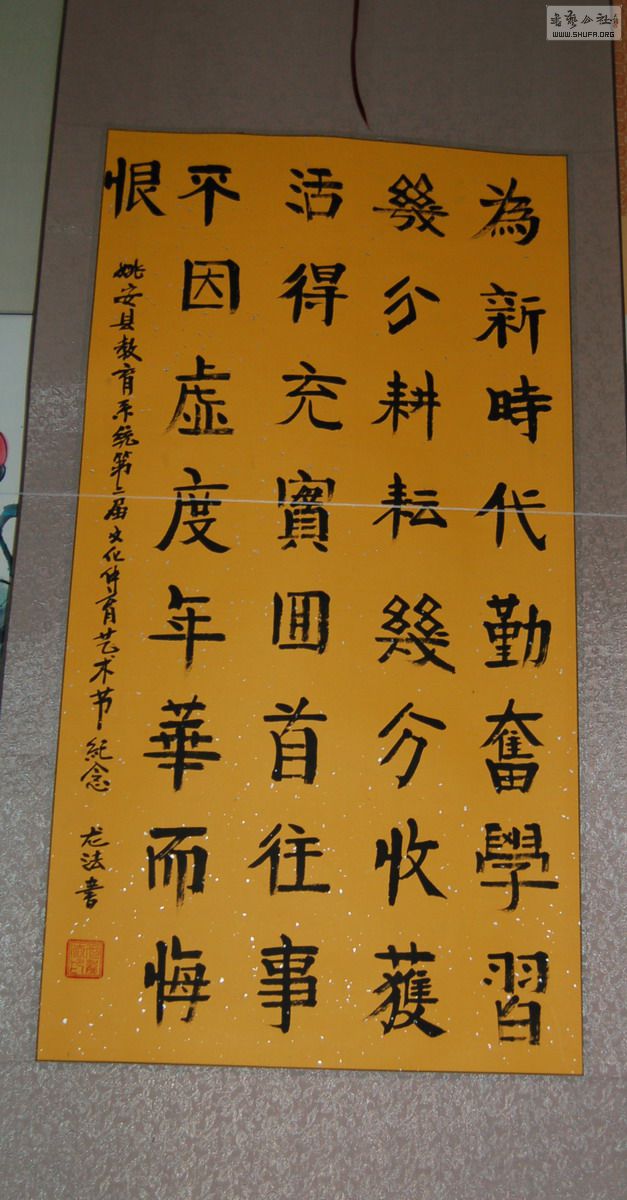 為新時代勤奮學習
幾分耕耘幾分收獲
活得充實囬首往事
不因虛度年華而悔
恨
姚安县教育系统第二届文化体育艺术节纪念
尤法書
書藝公社
WWW.SHUFA.ORG